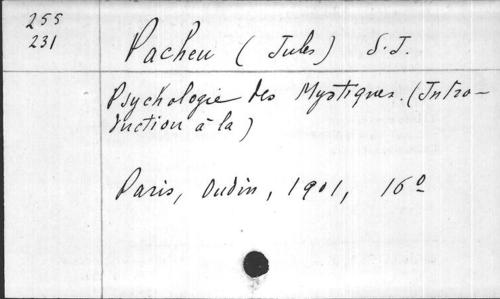 255
231
Pacheu (Jules) S.J.
Psychologie des Mystiques. (Intro-
duction à la)
Paris, Oudin, 1901, 16º